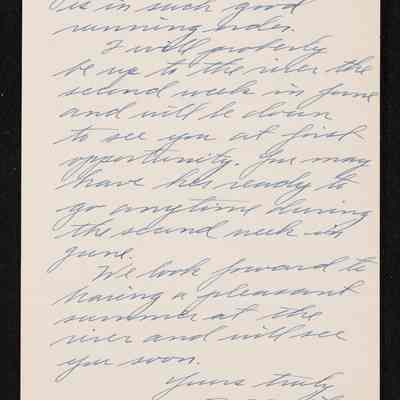 is in such good
running order.
I will proberly
be up to the river the
second week in June
and will be down
to see you at first
opportunity. You may
have her ready to
go anytime during
the second week in
June.
We look forward to
having a pleasant
summer at the
river and will see
you soon.
Yours truly